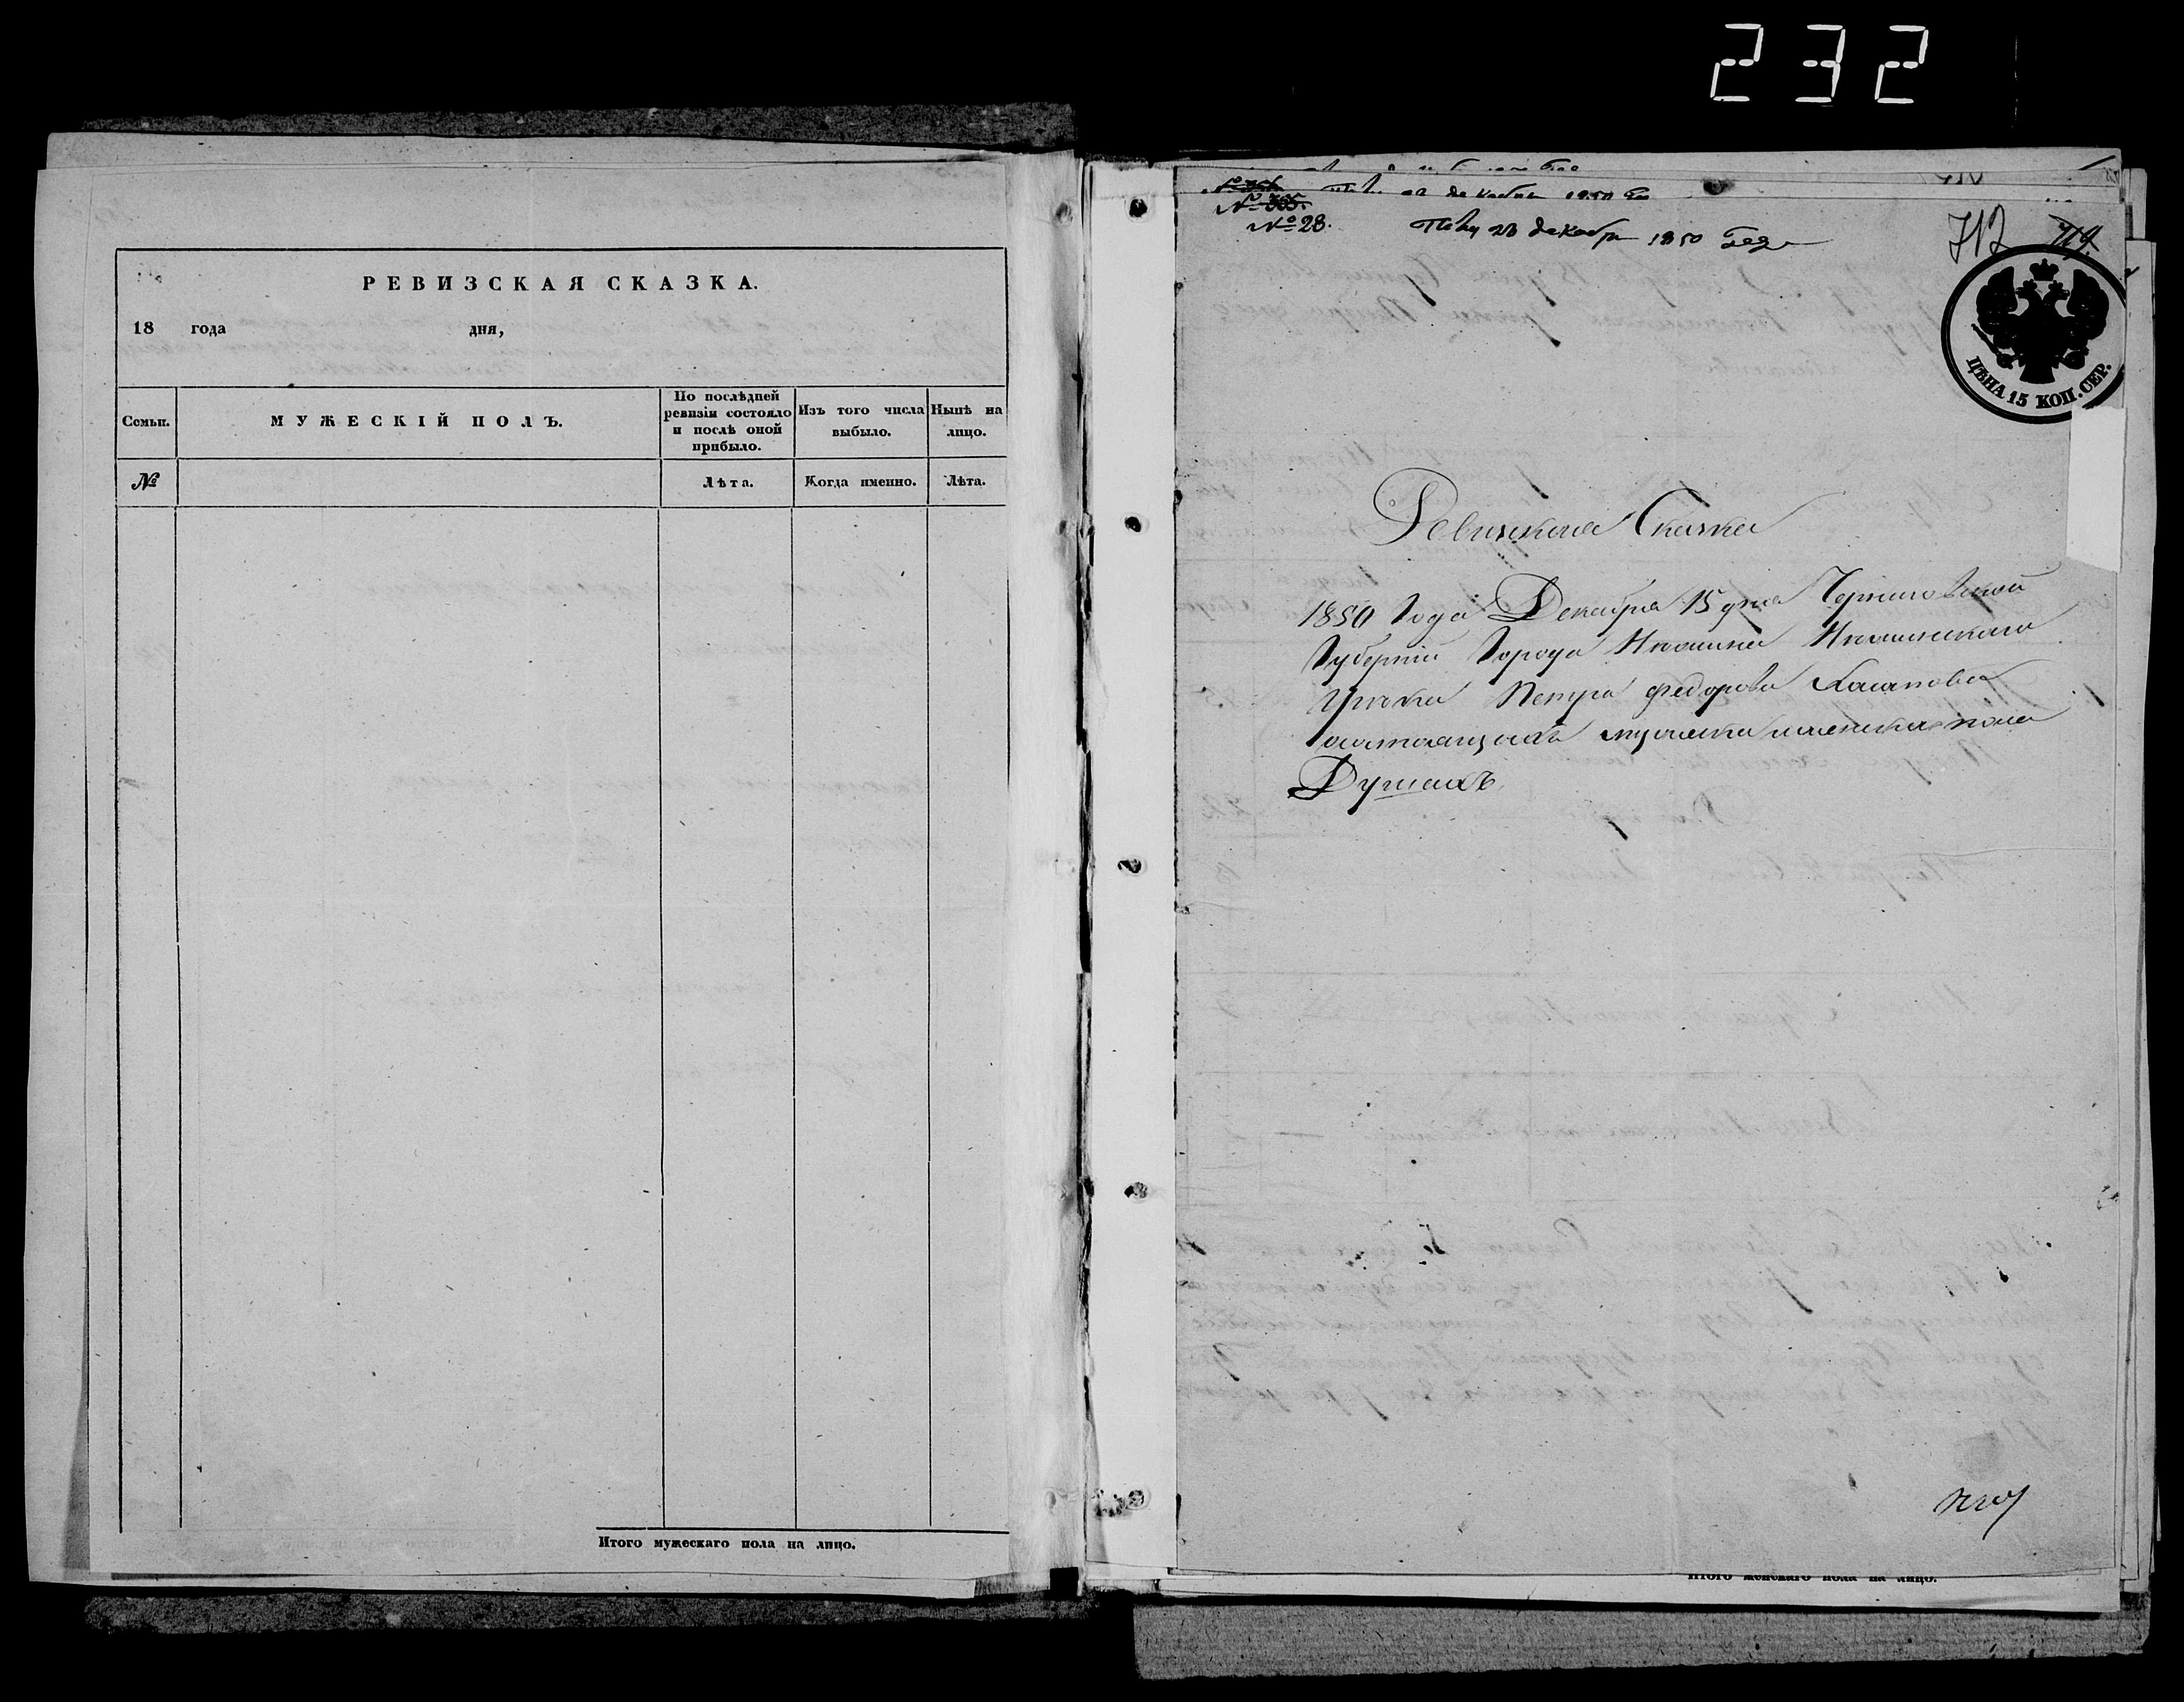 232
РЕВИЗСКАЯ СКАЗКА.
18 года дня,
Семьи.
МУЖЕСКІЙ ПОЛЪ.
По послѣдней ревизіи состояло и послѣ оной прибыло.
Изъ того числа выбыло.
Нынѣ на лицо.
№
Лѣта.
Когда именно.
Лѣта.
Итого мужескаго пола на лицо.
№ 28.
28 декабря 1850 года
712
ЦѢНА 15 КОП. СЕР.
Ревизская Сказка
1850 Года Декабря 15 дня Черниговской
Губерніи Города Нѣжина Нѣжинскаго
Грѣка Петра Федорова
состоящихъ мужеска и женска пола
Душахъ
Итого женскаго пола на лицо.